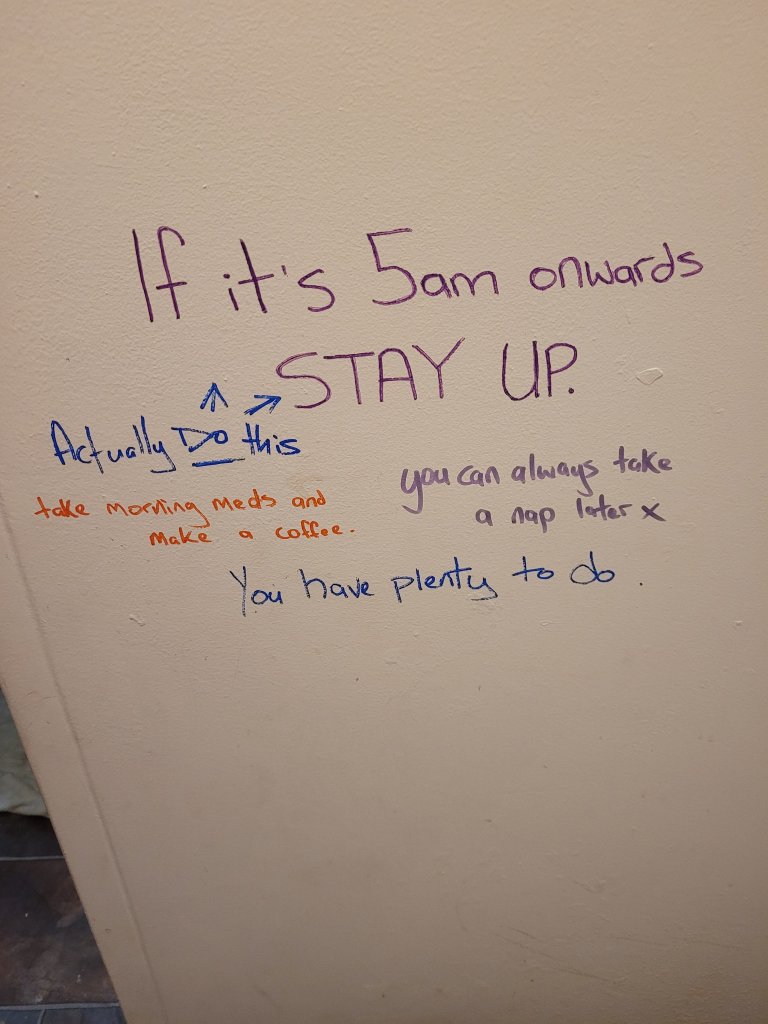 If it's 5am onwards
STAY UP.
Actually Do this
take morning meds and
make a coffee.
you can always take
a nap later x
You have plenty to do.